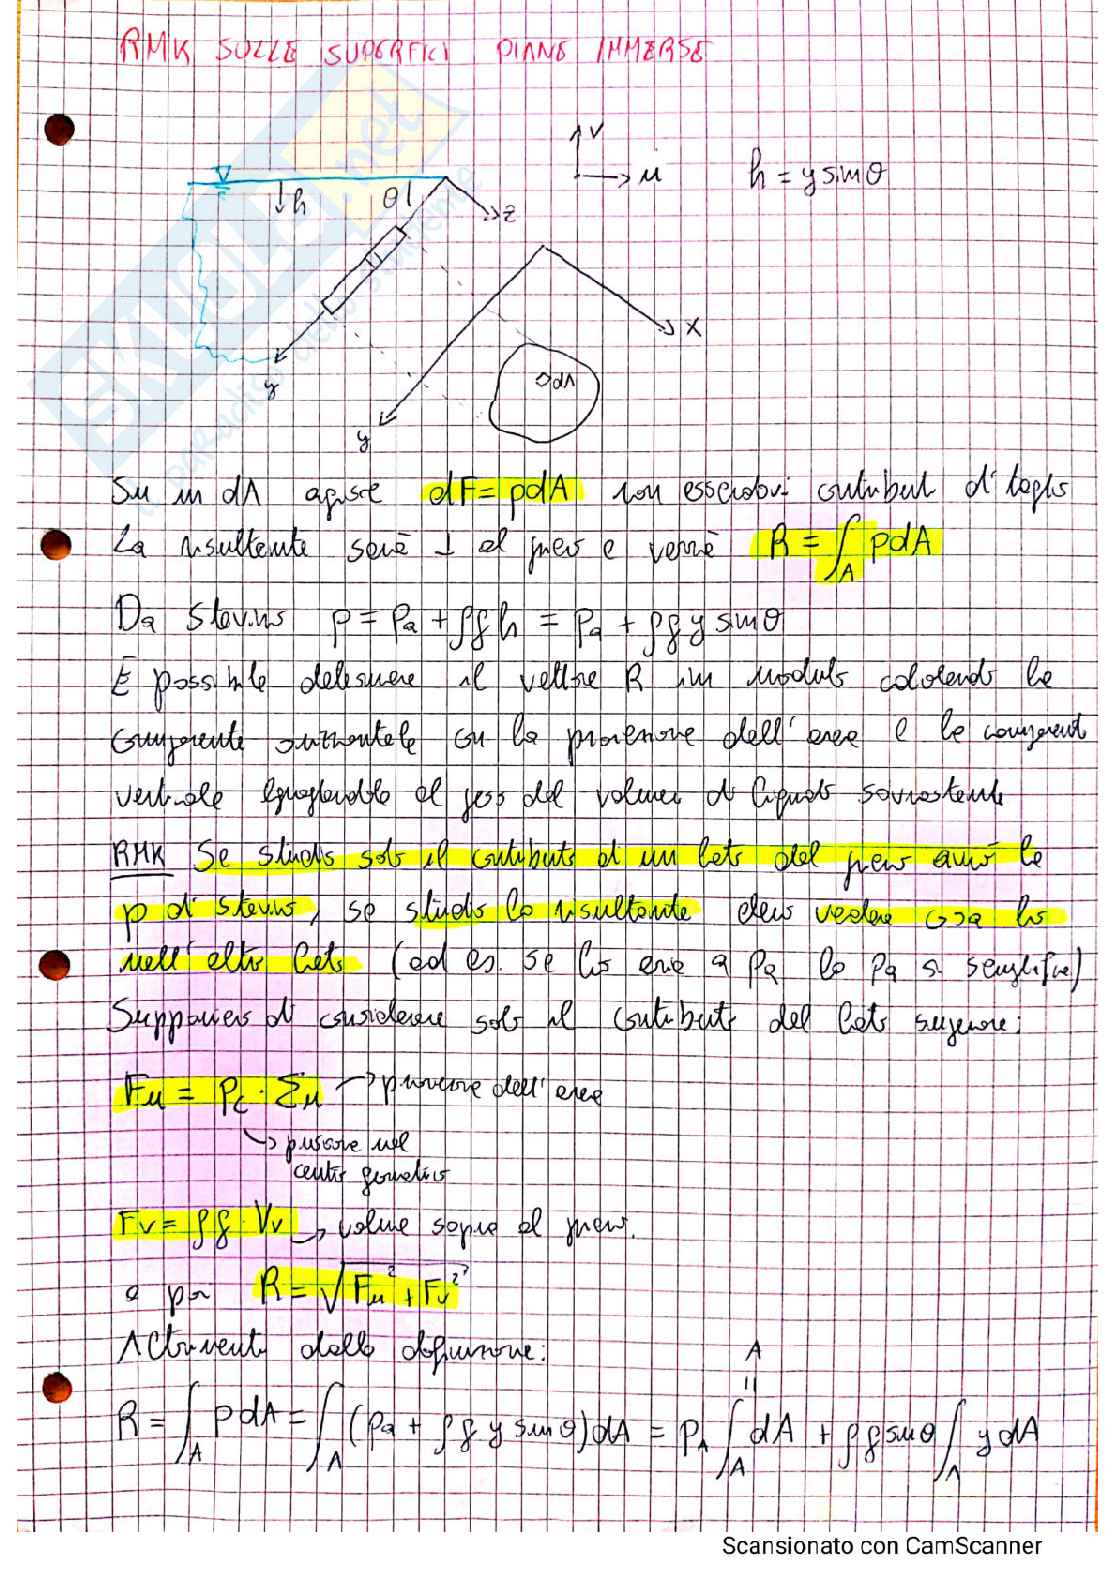 RMK SULLE SUPERFICI PIANE IMMERSE
v
u
h = y sinθ
h
θ
z
y
x
dA
y
Su un dA agisce dF = pdA non essendovi contributi di taglio
La risultante sarà ⊥ al piano e verrà R = ∫_A pdA
Da Stevino p = Pa + ρgh = Pa + ρg y sinθ
È possibile determinare il vettore R in modulo calcolando la
componente orizzontale con la proiezione dell'area e la component
verticale eguagliandola al peso del volume di liquido sovrastante
RMK Se studio solo il contributo di un lato del piano avrò la
p di Stevino, se studio la risultante devo vedere cosa ho
nell'altro lato (ad es. se ho aria a Pa la Pa si semplifica)
Supponiamo di considerare solo il contributo del lato superiore:
Fu = Pc · Σu → proiezione dell'area
↳ pressione nel
centro geometrico
Fv = ρg Vv → volume sopra al piano.
e poi R = √(Fu² + Fv²)
Altrimenti dalla definizione:
A
R = ∫_A pdA = ∫_A (Pa + ρg y sinθ)dA = PA ∫_A dA + ρg sinθ ∫_A y dA
Scansionato con CamScanner